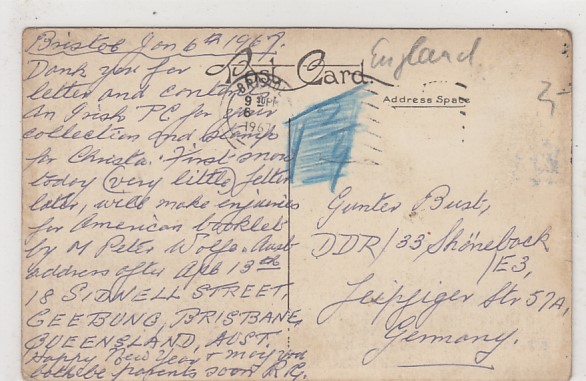 Bristol Jan 6th 1967.
Dank you for
letter and contents
An Irish PC for your
collection and stamp
for Christa. First snow
today (very little) letter
later, will make enquiries
for American booklet
by M Peter Wolfe. Aust
address after Apl 13th
18 SIDNELL STREET,
GEEBUNG, BRISBANE,
QUEENSLAND, AUST.
Happy New Year & may you
both be parents soon R.G.
Post Card.
England
BRISTOL
9 30 PM
6
1967
Address Space
Gunter Bust,
DDR/33 Shönebeck
/E3,
Leipziger Str 57A,
Germany.